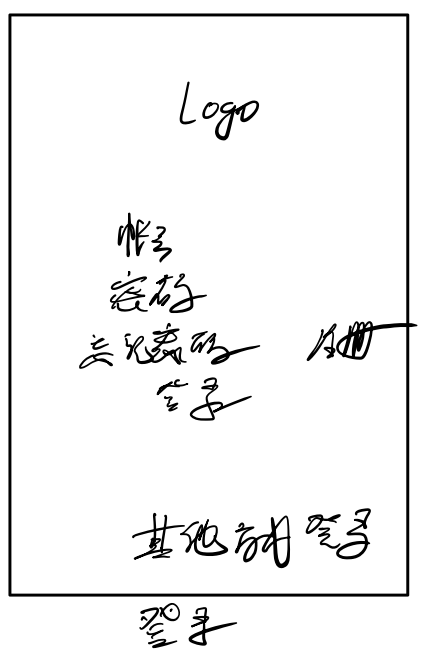 Logo
帐号
密码
忘记密码 注册
登录
其他方式登录
登录